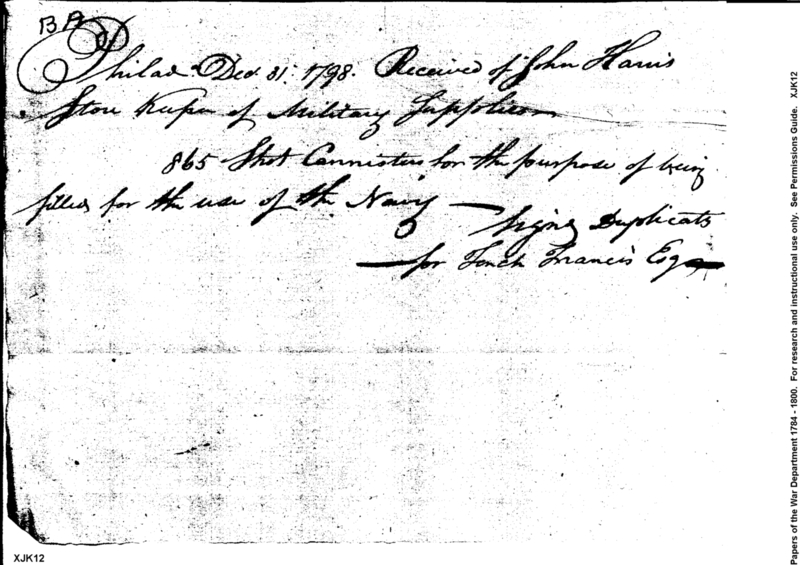 BA
Philad.ᵃ Decʳ 31: 1798. Received of John Harris
Store Keeper of Military Supplies
865 Shot Cannisters for the purpose of being
filled for the use of the Navy —
Signs Duplicats
— for Tench Francis Esq
XJK12
Papers of the War Department 1784 - 1800. For research and instructional use only. See Permissions Guide. XJK12